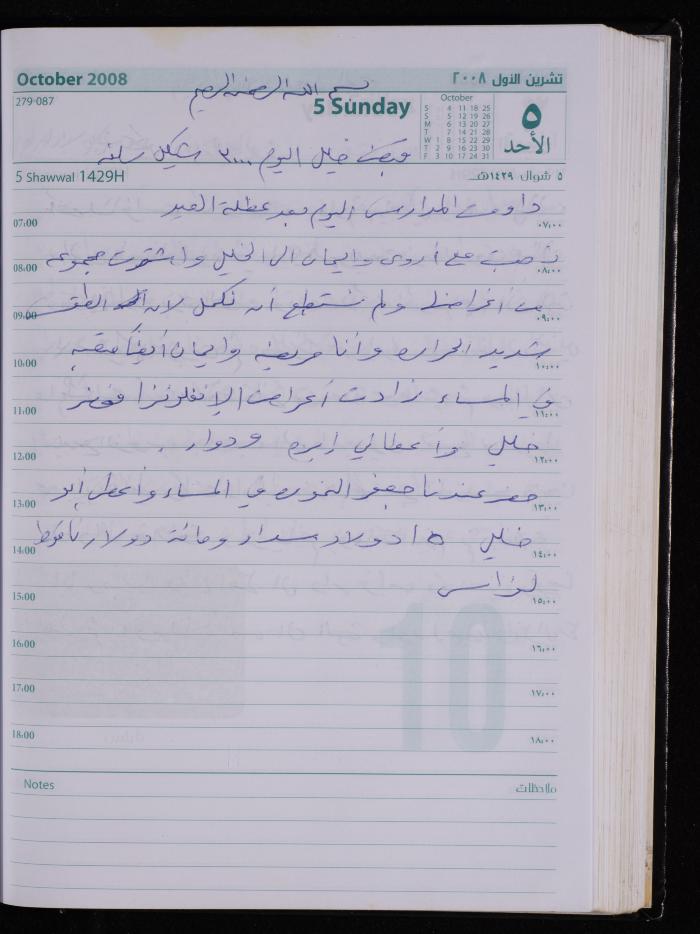 October 2008
تشرين الأول ٢٠٠٨
بسم الله الرحمن الرحيم
279-087
5 Sunday
October
S 4 11 18 25
S 5 12 19 26
M 6 13 20 27
T 7 14 21 28
W 1 8 15 22 29
T 2 9 16 23 30
F 3 10 17 24 31
٥
الأحد
قبضت خليل اليوم ٣٠٠٠ شيكل سلفة
5 Shawwal 1429H
٥ شوال ١٤٢٩هـ
داومت المدارس اليوم بعد عطلة العيد
07:00 ٠٧:٠٠
ذهبت مع أروى وايمان الى الخليل واشتريت مجموعة
08:00 ٠٨:٠٠
من أغراضنا ولم نستطع أن نكمل لان الطقس
09:00 ٠٩:٠٠
شديد الحرارة وأنا مريضة وايمان أيضا
10:00 ١٠:٠٠
في المساء زادت أعراض الإنفلونزا
11:00 ١١:٠٠
خليل وأعطاني إبرة ودواء .
12:00 ١٢:٠٠
حضر عندنا جعفر في المساء وأعطى أبو
13:00 ١٣:٠٠
خليل ١٥ دولار سداد ومائة دولار
14:00 ١٤:٠٠
15:00 ١٥:٠٠
16:00 ١٦:٠٠
17:00 ١٧:٠٠
18:00 ١٨:٠٠
10
Notes
ملاحظات